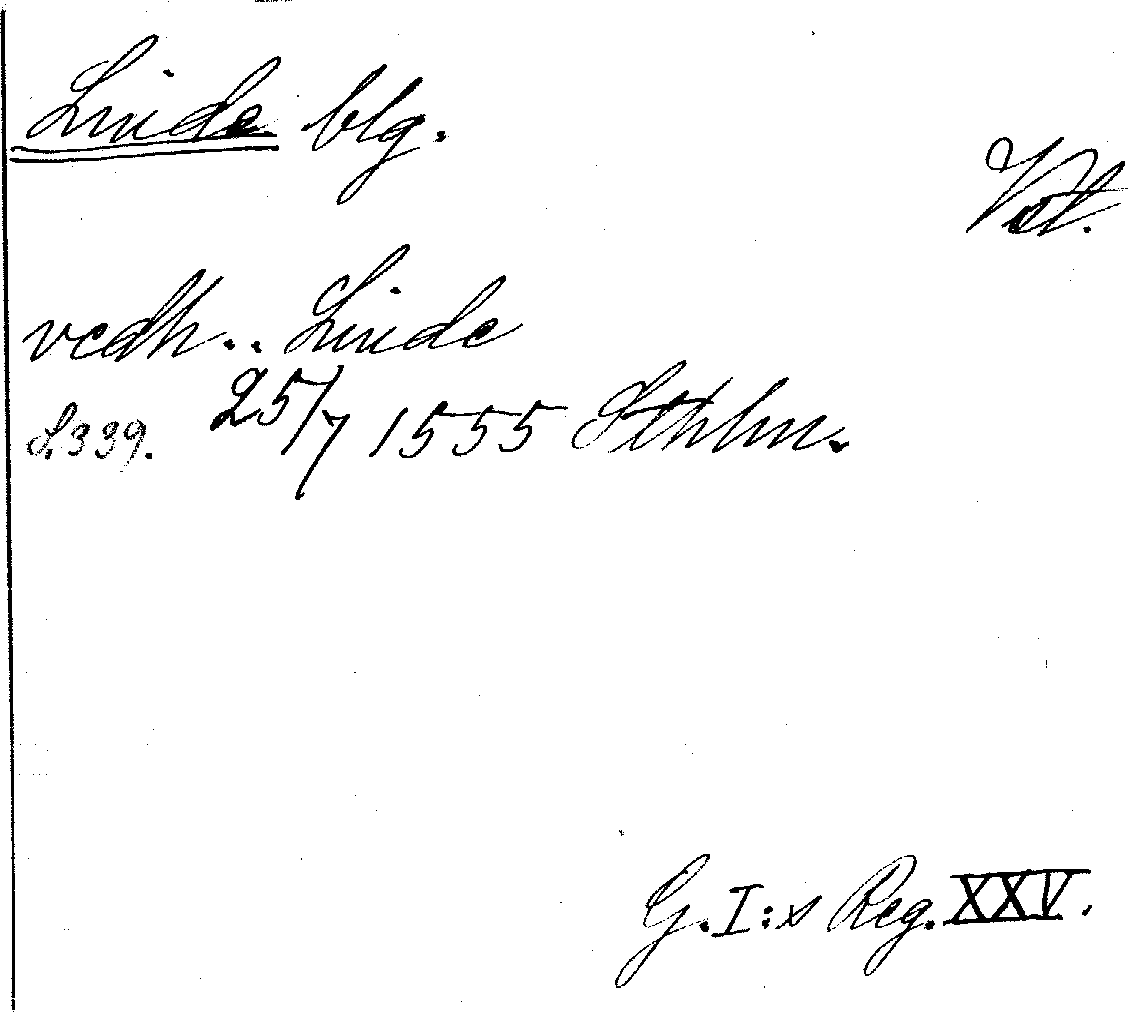 Linde blg.
Vstl.
vedh.. Linde
25/7 1555 Sthlm.
S. 339.
G. I:s Reg. XXV.